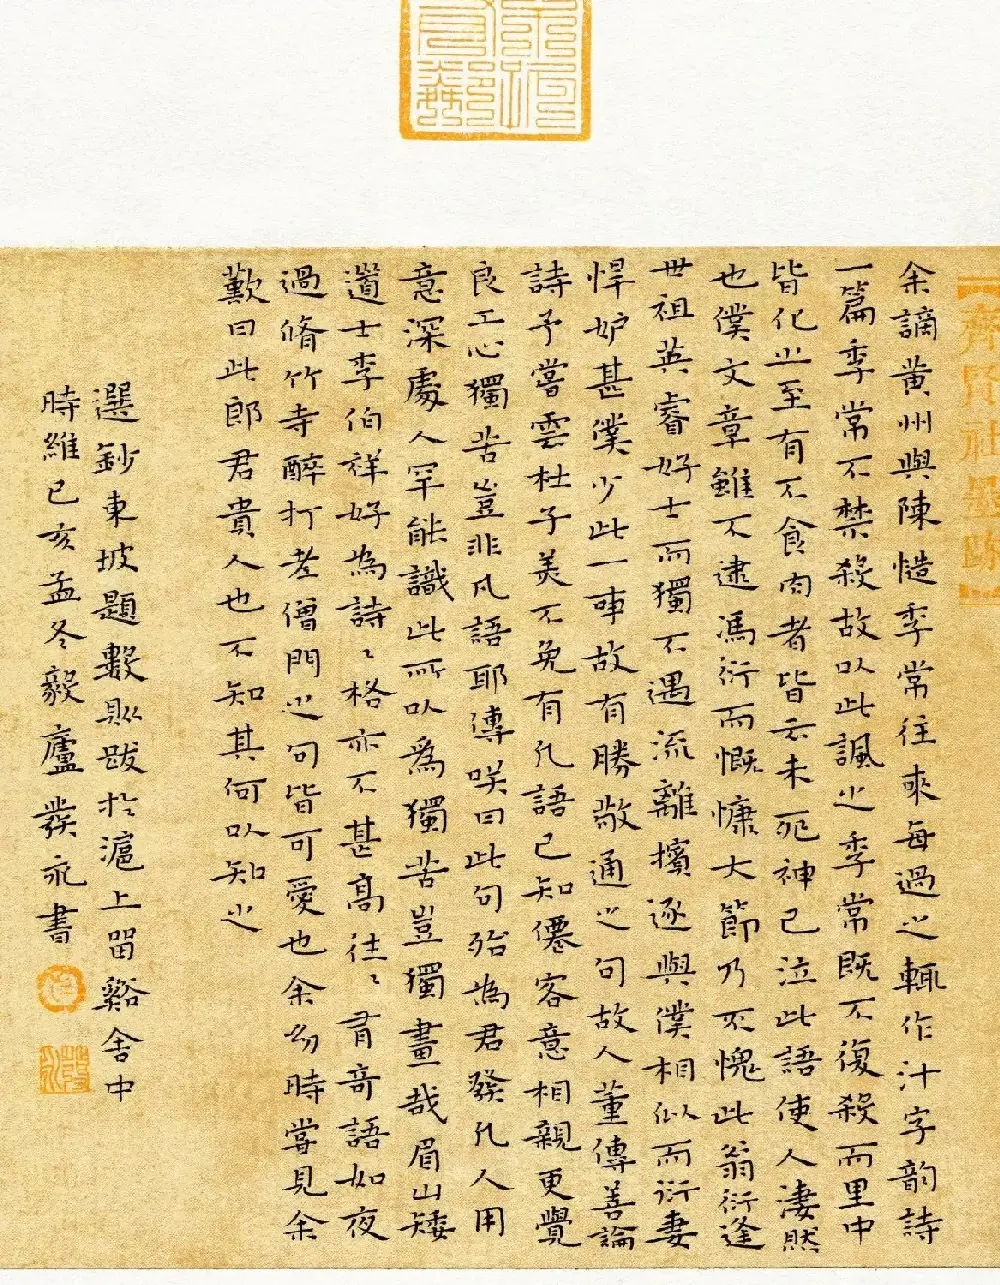 齊賢社墨跡
余謫黄州與陳慥季常往來每過之輒作汁字韵詩
一篇季常不禁殺故以此諷之季常既不復殺而里中
皆化之至有不食肉者皆云未死神已泣此語使人淒然
也僕文章雖不逮馮衍而慨慷大節乃不愧此翁衍逢
世祖英睿好士而獨不遇流離擯逐與僕相似而衍妻
悍妒甚僕少此一事故有勝敬通之句故人董傳善論
詩予嘗雲杜子美不免有凡語已知僊客意相親更覺
良工心獨苦豈非凡語耶傳咲曰此句殆為君發凡人用
意深處人罕能識此所以為獨苦豈獨畫哉眉山矮
道士李伯祥好為詩〻格亦不甚高往〻有奇語如夜
過脩竹寺醉打老僧門之句皆可愛也余幼時嘗見余
歎曰此郎君貴人也不知其何以知之
選鈔東坡題數則跋於滬上留谿舍中
時維己亥孟冬毅廬發永書